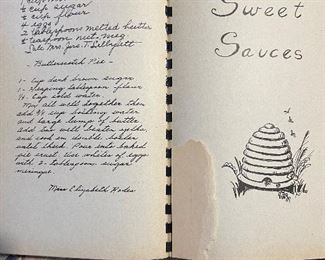 ½ cup sugar
½ cup flour
4 eggs
2 tablespoons melted butter
½ teaspoon nutmeg
Late Mrs. Jas. T.
-Butterscotch Pie-
1 - Cup dark brown sugar
1 - Heaping tablespoon flour
¼ Cup cold water.
Mix all well together then
add ¾ cup boiling water
and large lump of butter
add two well beaten yolks,
and cook in double boiler
until thick. Pour into baked
pie crust. Use whites of eggs
with 2 - tablespoons sugar
meringue.
Miss Elizabeth Hodes
Sweet
Sauces